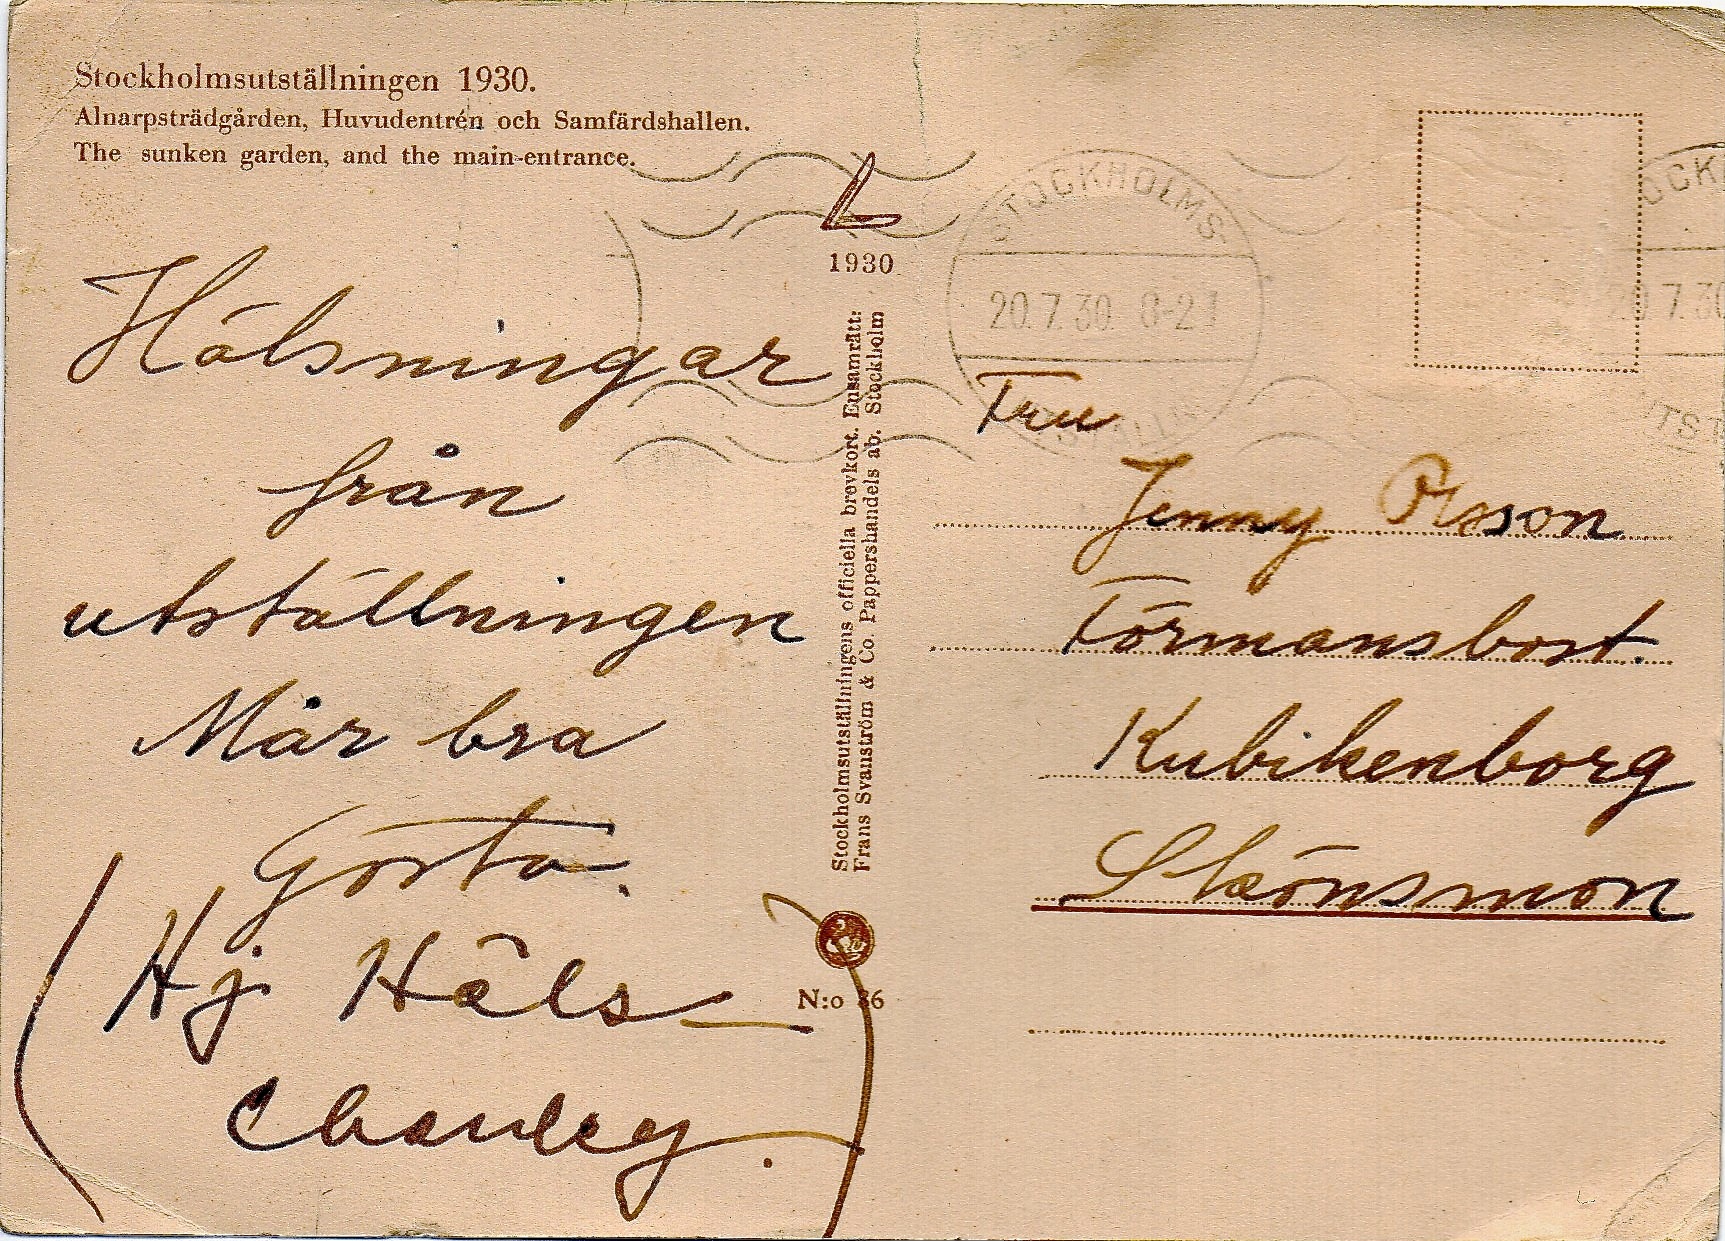 Stockholmsutställningen 1930.
Alnarpsträdgården, Huvudentrén och Samfärdshallen.
The sunken garden, and the main-entrance.
1930
Hälsningar
från
utställningen
Mår bra
Gösta.
(Hj Häls
Charley.)
Stockholmsutställningens officiella brevkort. Ensamrätt:
Frans Svanström & Co. Pappershandels ab. Stockholm
N:o 86
STOCKHOLMS
20.7.30
UTSTÄLLN
OCK
20 7.30
UTST
Fru
Jenny Olsson
Förmansbost.
Kubikenborg
Skönsmon